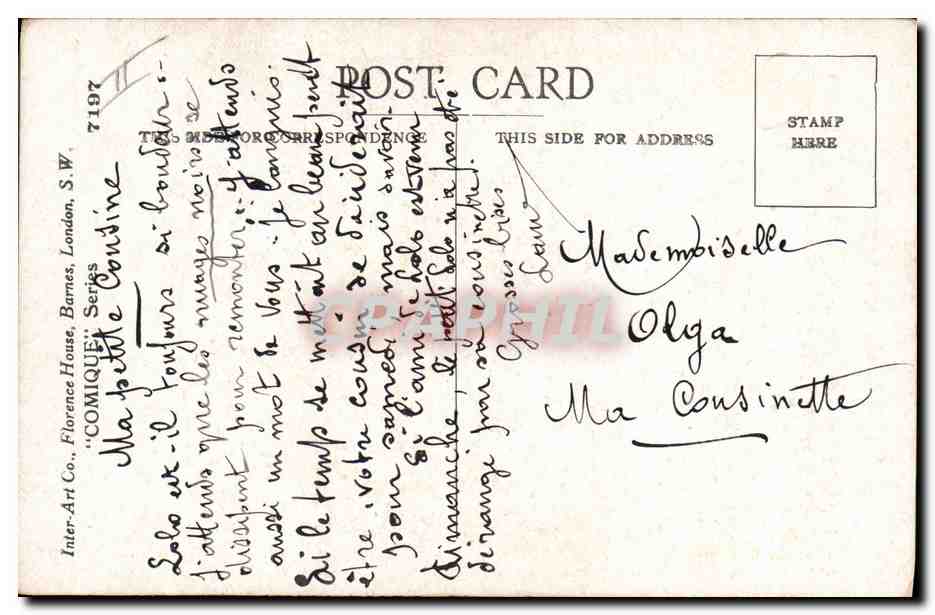 Inter-Art Co., Florence House, Barnes, London, S.W.
"COMIQUE" Series 7197
POST CARD
THIS SIDE FOR CORRESPONDENCE
THIS SIDE FOR ADDRESS
STAMP
HERE
Ma petite Cousine
Lolo est-il toujours si boudeur :-
J'attends que les nuages noirs se
dissipent pour remonter :- J'attends
aussi un mot de vous :- Je
Si le temps se mettait au beau peut
être, votre cousin se
pour samedi mais
Si l'ami de Lolo est venu
dimanche, le petit Lolo n'a pas été
dérangé par sa cousinette!
Grosses bises
Mademoiselle
Olga
Ma Cousinette
CPAPHIL